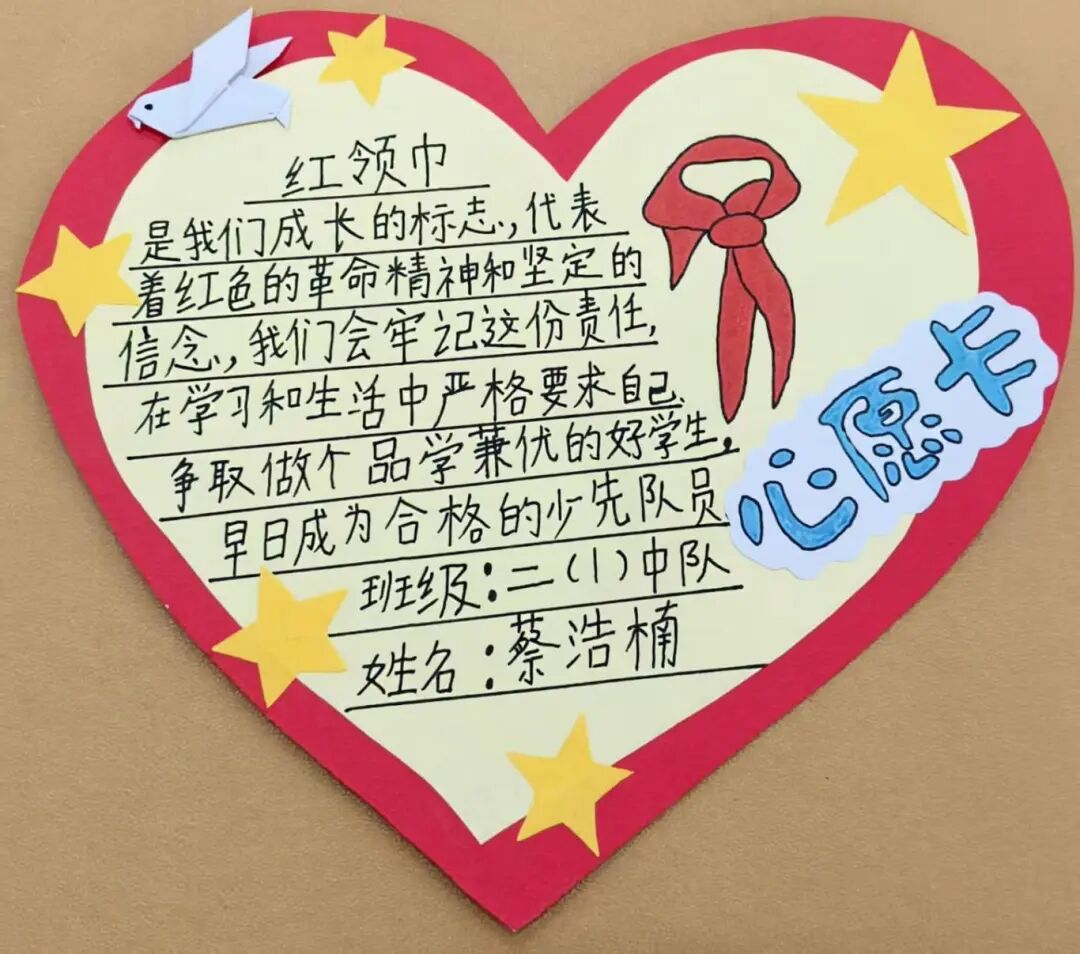 红领巾
是我们成长的标志,代表
着红色的革命精神和坚定的
信念,我们会牢记这份责任,
在学习和生活中严格要求自己,
争取做个品学兼优的好学生,
早日成为合格的少先队员.
班级:二(1)中队
姓名:蔡浩楠
心愿卡